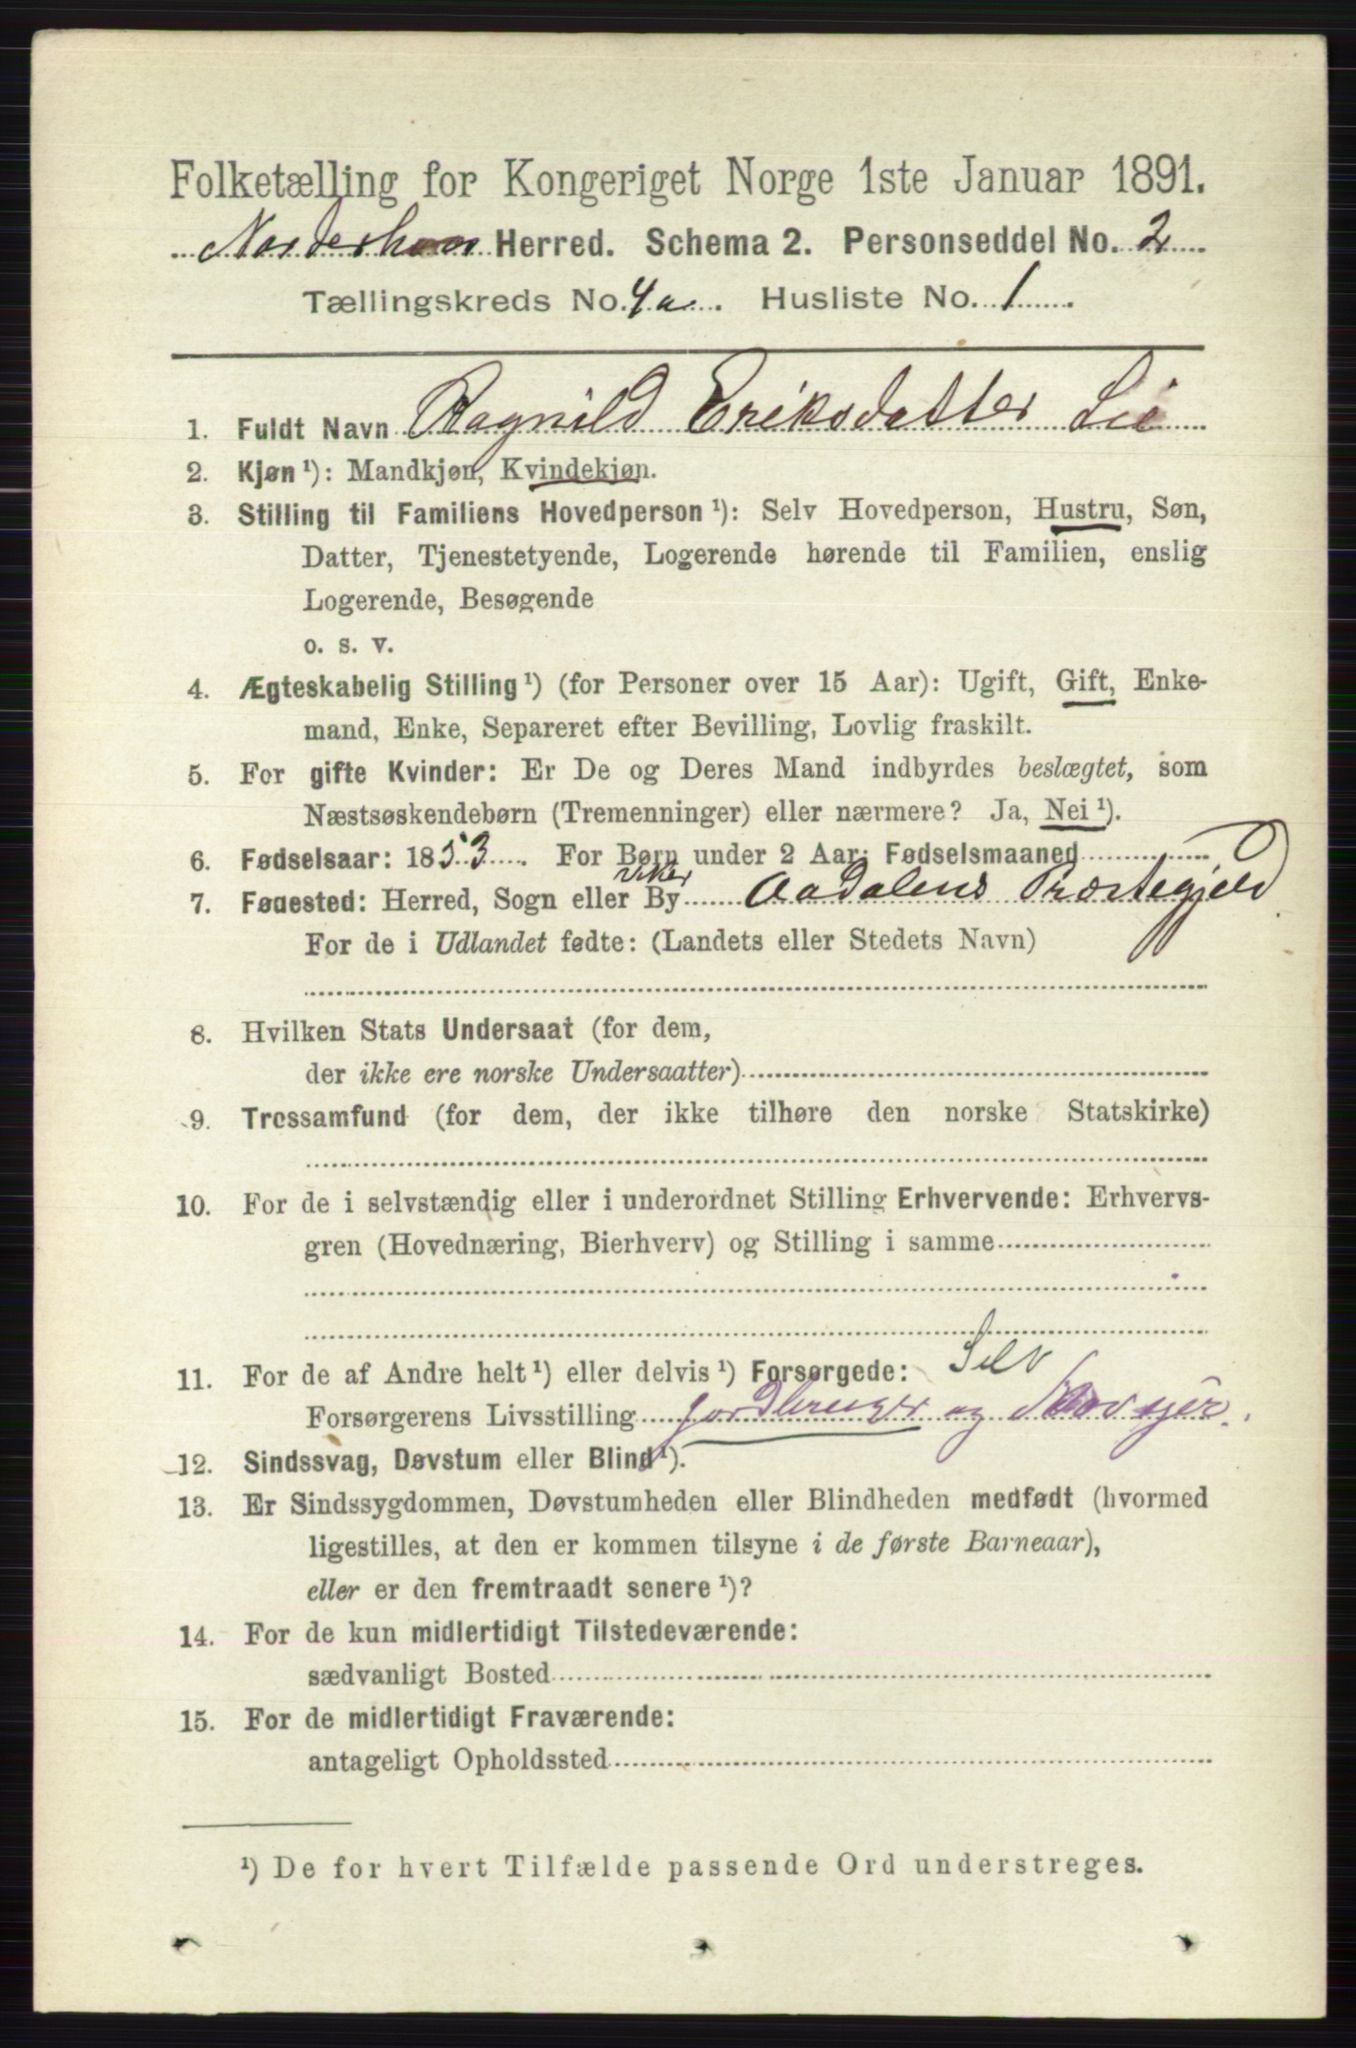 Folketælling for Kongeriget Norge 1ste Januar 1891.
Norderhov Herred. Schema 2. Personseddel No. 2
Tællingskreds No. 4a. Husliste No. 1
1. Fuldt Navn Ragnild Eriksdatter Lie
2. Kjøn¹): Mandkjøn, Kvindekjøn.
3. Stilling til Familiens Hovedperson¹): Selv Hovedperson, Hustru, Søn,
Datter, Tjenestetyende, Logerende hørende til Familien, enslig
Logerende, Besøgende
o. s. v.
4. Ægteskabelig Stilling¹) (for Personer over 15 Aar): Ugift, Gift, Enke-
mand, Enke, Separeret efter Bevilling, Lovlig fraskilt.
5. For gifte Kvinder: Er De og Deres Mand indbyrdes beslægtet, som
Næstsøskendebørn (Tremenninger) eller nærmere? Ja, Nei¹).
6. Fødselsaar: 1853. For Børn under 2 Aar: Fødselsmaaned
Viker
7. Fødested: Herred, Sogn eller By Aadalens Præstegjeld
For de i Udlandet fødte: (Landets eller Stedets Navn)
8. Hvilken Stats Undersaat (for dem,
der ikke ere norske Undersaatter)
9. Trossamfund (for dem, der ikke tilhøre den norske Statskirke)
10. For de i selvstændig eller i underordnet Stilling Erhvervende: Erhvervs-
gren (Hovednæring, Bierhverv) og Stilling i samme
11. For de af Andre helt¹) eller delvis¹) Forsørgede: Selv
Forsørgerens Livsstilling jordbruger og
12. Sindssvag, Døvstum eller Blind¹).
13. Er Sindssygdommen, Døvstumheden eller Blindheden medfødt (hvormed
ligestilles, at den er kommen tilsyne i de første Barneaar),
eller er den fremtraadt senere¹)?
14. For de kun midlertidigt Tilstedeværende:
sædvanligt Bosted
15. For de midlertidigt Fraværende:
antageligt Opholdssted
¹) De for hvert Tilfælde passende Ord understreges.